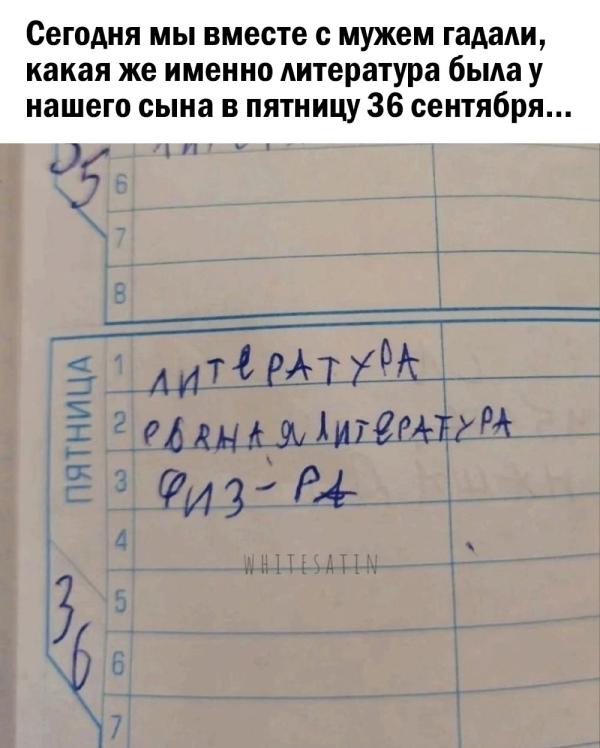 Сегодня мы вместе с мужем гадали,
какая же именно литература была у
нашего сына в пятницу 36 сентября...
35
6
7
8
ПЯТНИЦА
1 ЛИТЕРАТУРА
2 РВАНАЯ ЛИТЕРАТУРА
3 ФИЗ-РА
4
WHITESATIN
36
5
6
7